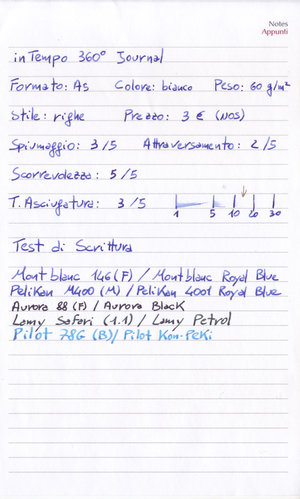 Notes
Appunti
inTempo 360° Journal
Formato: A5 Colore: bianco Peso: 60 g/m²
Stile: righe Prezzo: 3 € (NOS)
Spiumaggio: 3/5 Attraversamento: 2/5
Scorrevolezza: 5/5
T. Asciugatura: 3/5
1 5 10 20 30
Test di Scrittura
Montblanc 146 (F) / Montblanc Royal Blue
Pelikan M400 (M) / Pelikan 4001 Royal Blue
Aurora 88 (F) / Aurora Black
Lamy Safari (1.1) / Lamy Petrol
Pilot 78G (B) / Pilot Kon-Peki